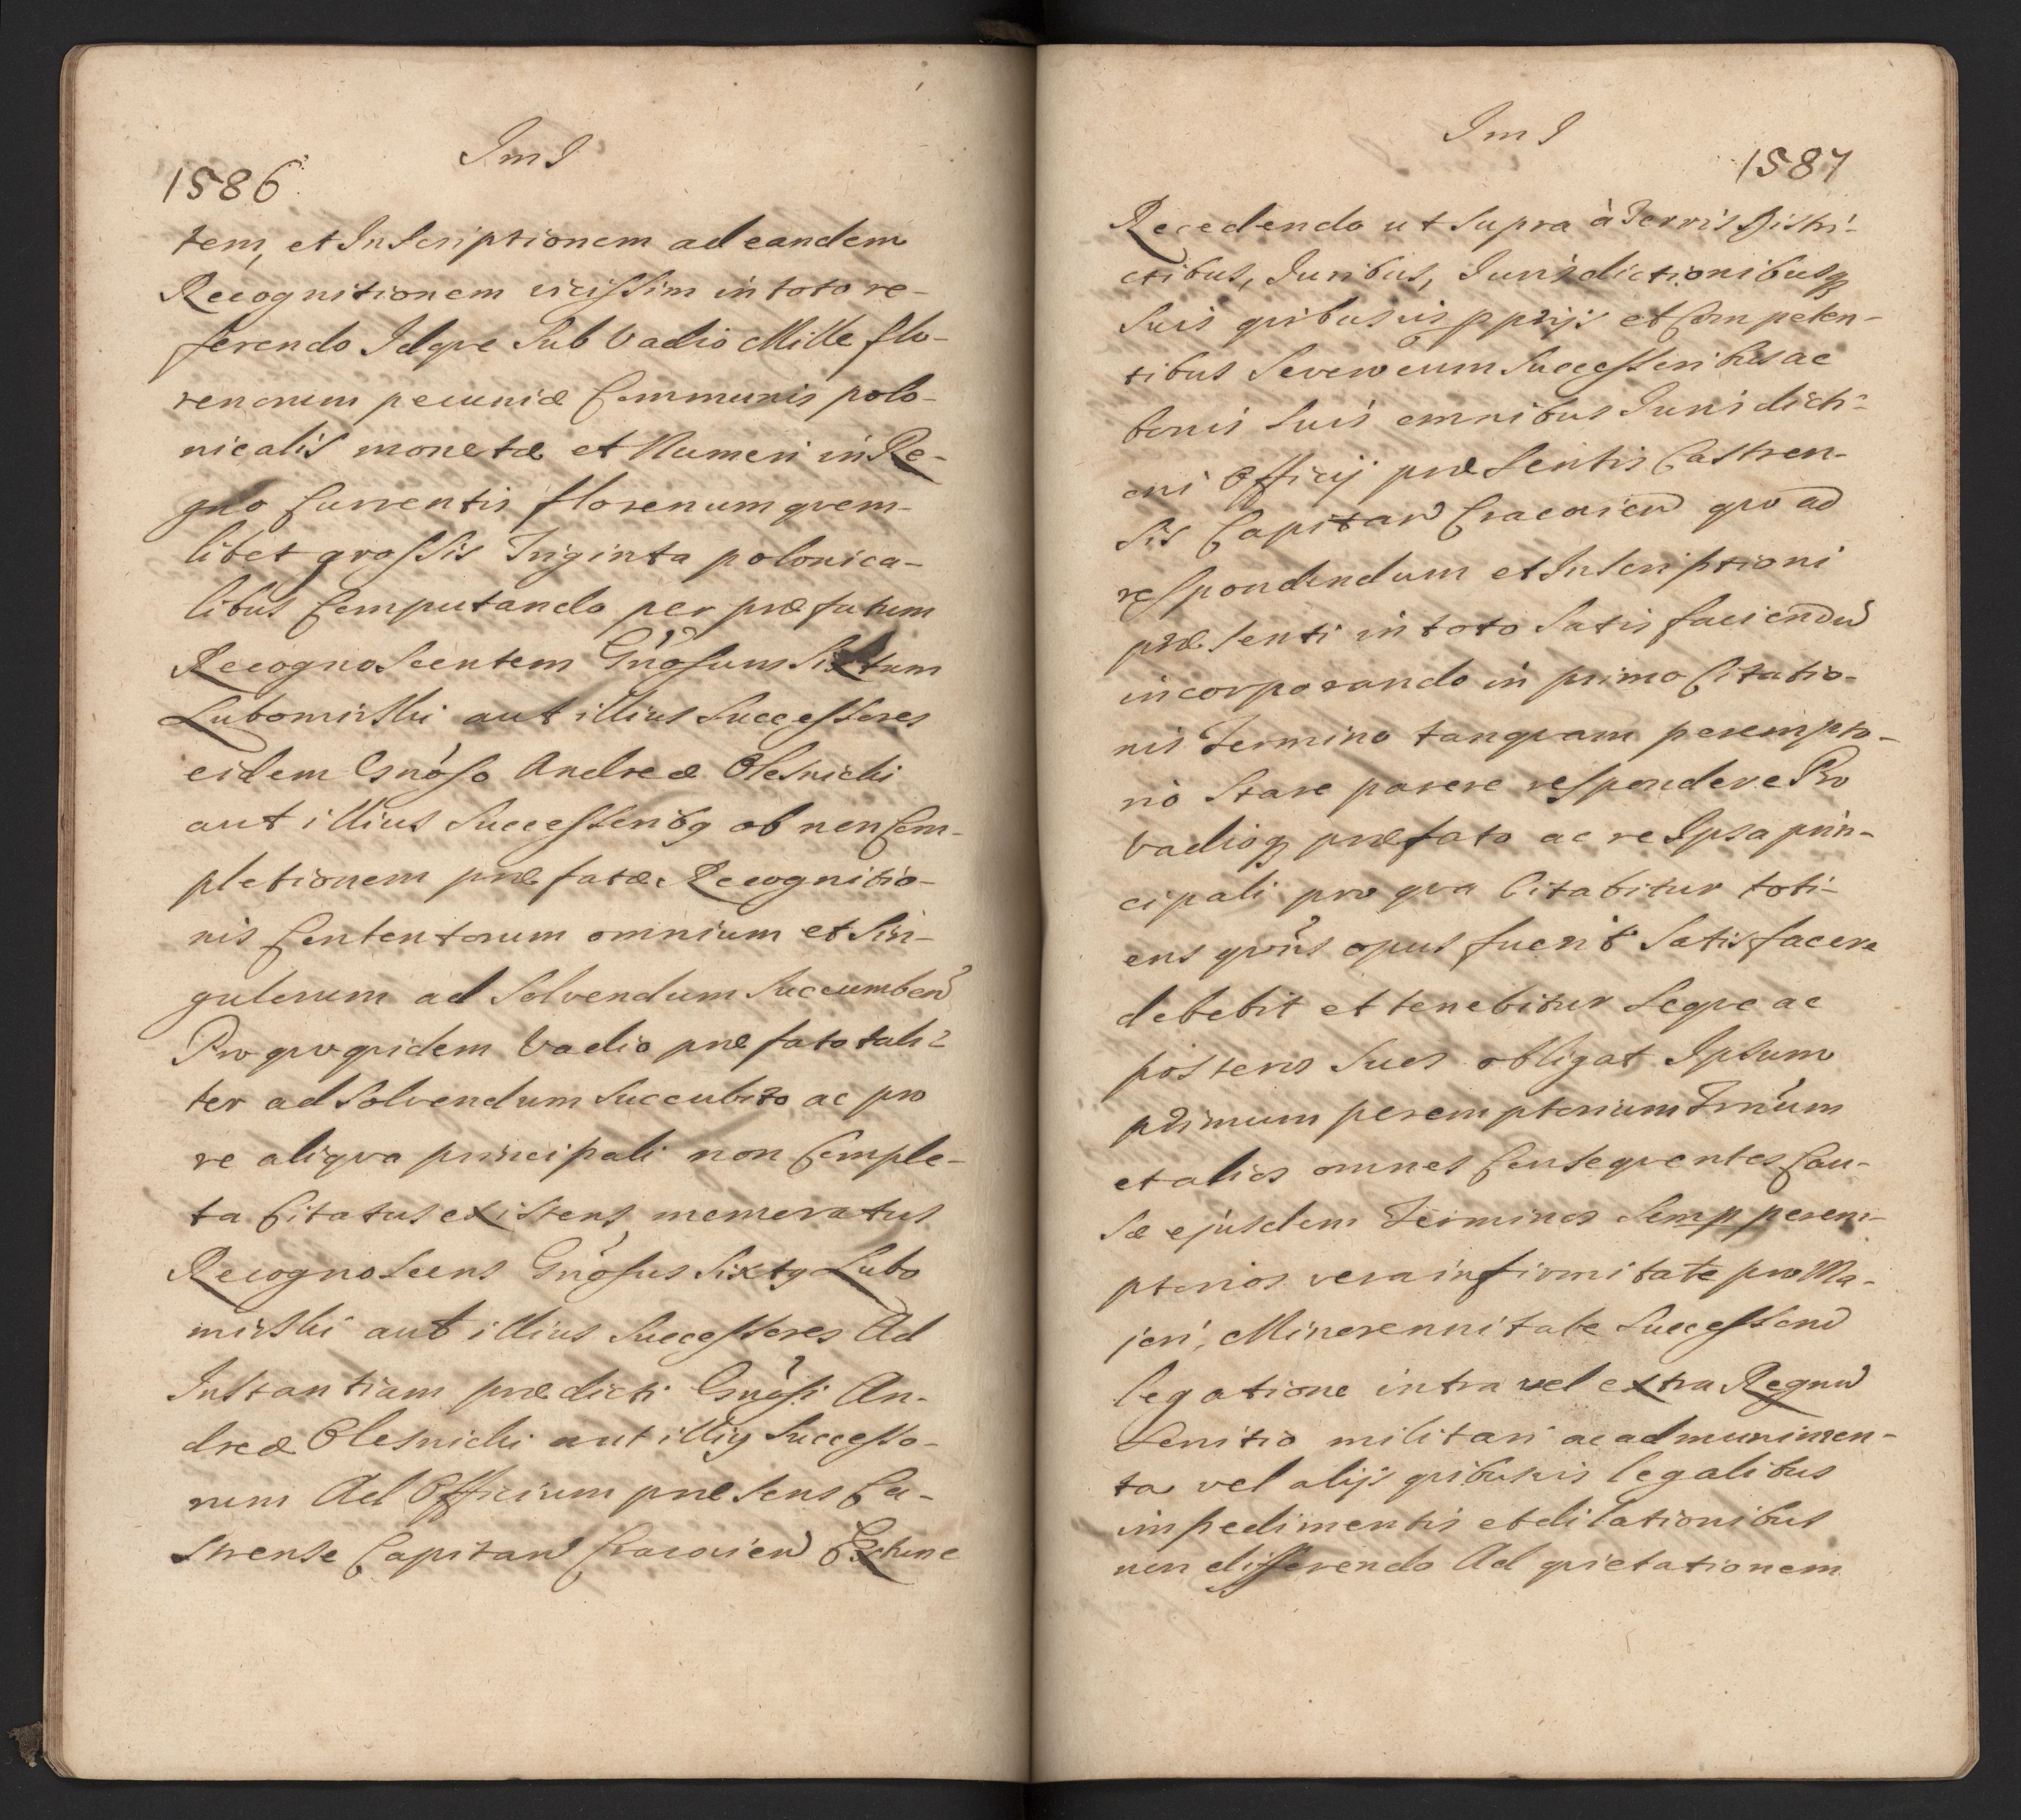 ImI
1586
tem, et Inscriptionem ad eandem
Recognitionem vicissim in toto re-
ferendo Idqve Sub Vadio Mille flo-
renorum pecuniæ Communis polo-
nicalis monetæ et Numeri in Re-
gno Currentis florenum qvem-
libet grossis Triginta polonica-
libus Computando per præfatum
Recognoscentem Gñosum Sixtum
Lubomirski aut illius Successores
eidem Gñoso Andreæ Olesnicki
aut illius Successoribq ob non Com-
pletionem præfatæ Recognitio-
nis Contentorum omnium et Sin-
gulorum ad Solvendum Succumben
Pro qvo qvidem Vadio præfato tali-
ter ad Solvendum Succubito ac pro
re aliqva principali non Comple-
ta Citatus existens memoratus
Recognoscens Gñosus Sixtq Lubo
mirski aut illius Successores Ad
Instantiam prædicti Gñosi An-
dreæ Olesnicki aut illiq Successo-
rum Ad Officium præsens Ca-
strense Capitan Cracovien Extunc
ImI
1587
Recedendo ut Supra à Terris Distri-
ctibus, Juribus, Jurisdictionibusq
Suis qvibusvis pprijs et Competen-
tibus Severo cum Successoribus ac
bonis Suis omnibus Jurisdicti-
oni Officij præsentis Castren-
sis Capitan Cracovien qvo ad
respondendum et Inscriptioni
præsenti in toto Satisfaciendu
incorporando in primo Citatio-
nis Termino tanqvam perempto-
rio Stare parere respondere Pro
Vadioq præfato ac re Ipsa prin-
cipali pro qva Citabitur toti-
ens qvoties opus fuerit Satisfacere
debebit et tenebitur Seqve ac
posteros Suos obligat Ipsum
primum peremptorium Trñum
et alios omnes Conseqventes Cau-
sæ ejusdem Terminos Semp perem-
ptorios vera infirmitate pro Ma-
jori, Minorennitate Successorū
legatione intra vel extra Regnū
Servitio militari ac ad munimen-
ta vel alijs qvibusvis legalibus
impedimentis et dilationibus
non differendo Ad qvietationem